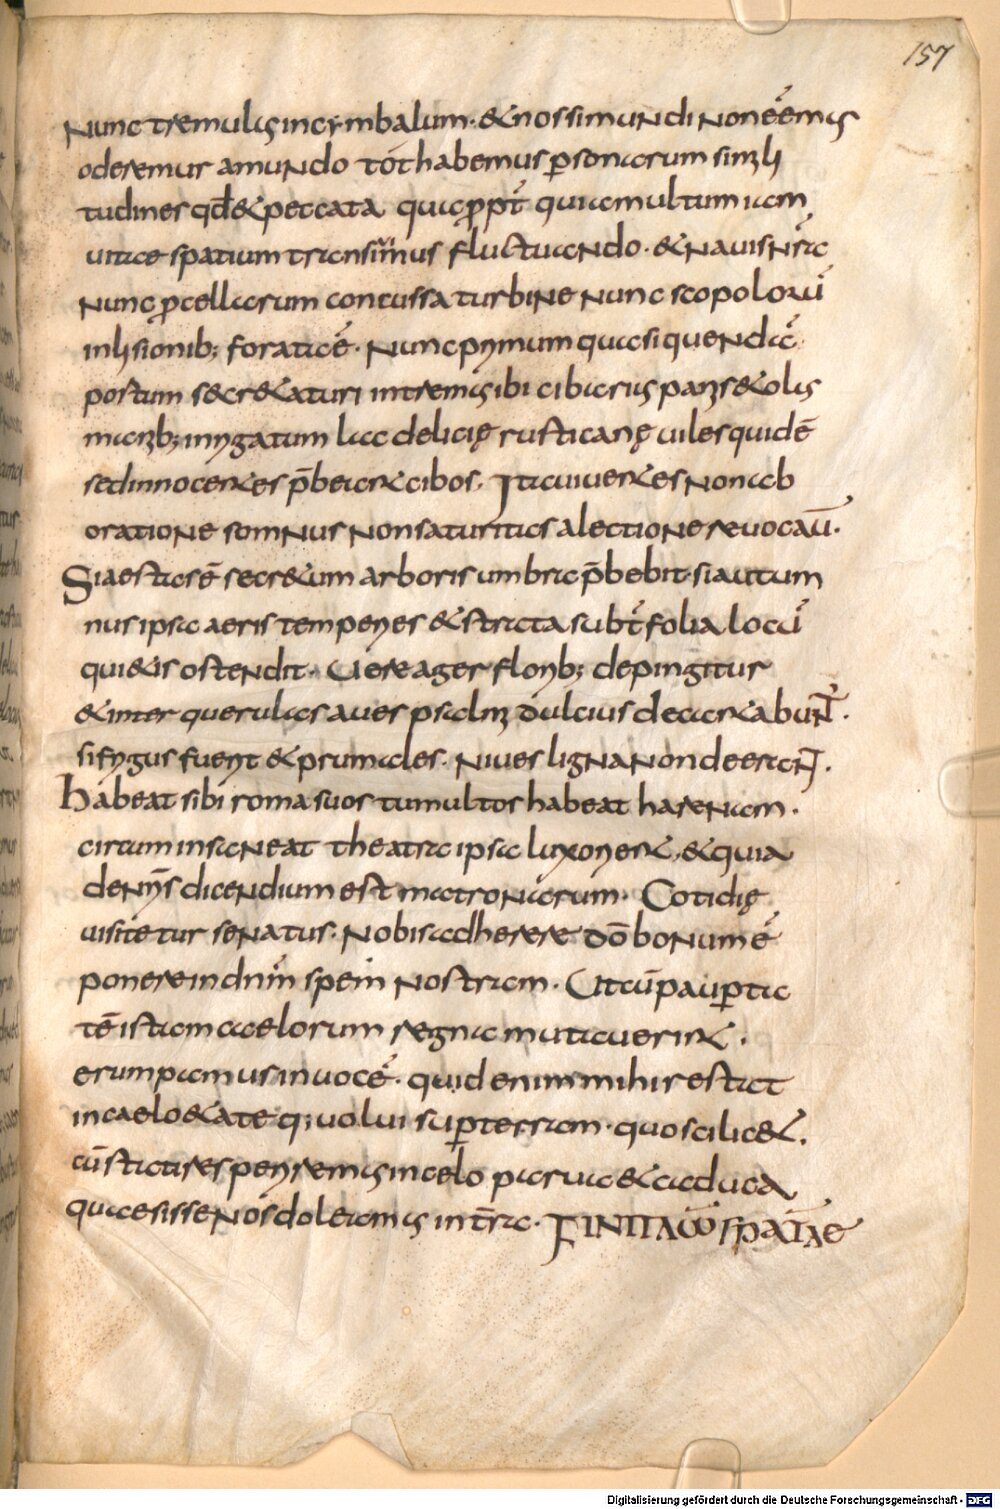 157
Nunc tremulus in cymbalum. & nossi mundi non eēmus
oderemur a mundo tot habemus p̱sonarum simili
tudines qd̄ & peccata qua p̱pt̄ quia multum iam
uitae spatium transim̄us fluctuando. & nauis nr̄a
nunc p̱cellarum concussa turbine nunc scopoloru᷄
inlisionib; forata ē. Nunc primum quasi quendā
portum secr&a ruri intremus ibi cibarius panis & olus
manib; inrigatum lac delicię rusticanę uiles quidē
sed innocentes p̄beant cibos. Ita uiuentes non ab
oratione somnus non saturitas a lectione reuocau̅.
Si aestas ē secr&um arboris umbra p̄bebit. si autum
nus ipsa aeris temperies & strata subt̄ folia locū
qui&is ostendit. Uere ager florib; depingitur
& inter querulas aues psalmi dulcius decantabunt̄.
si frigus fuerit & brumales. niues ligna non deerunt.
habeat sibi roma suos tumultos habeat harenam.
circum insaneat theatra ipsa luxorient, & quia
de nr̄is dicendium est matronarum. Cotidię
uisitetur senatus. Nobis adherere dō bonum ē
ponere in dnm̄ spem nostram. Ut cū paup̱ta
tē istam caelorum regna mutauerint.
erumpamus in uocē. quid enim mihi restat
in caelo & a te q; uolui sup̱ terram. quo scilic&.
cū statares periremus in celo parua & caduca
quaesisse nos doleamus in tr̄a. FINIT